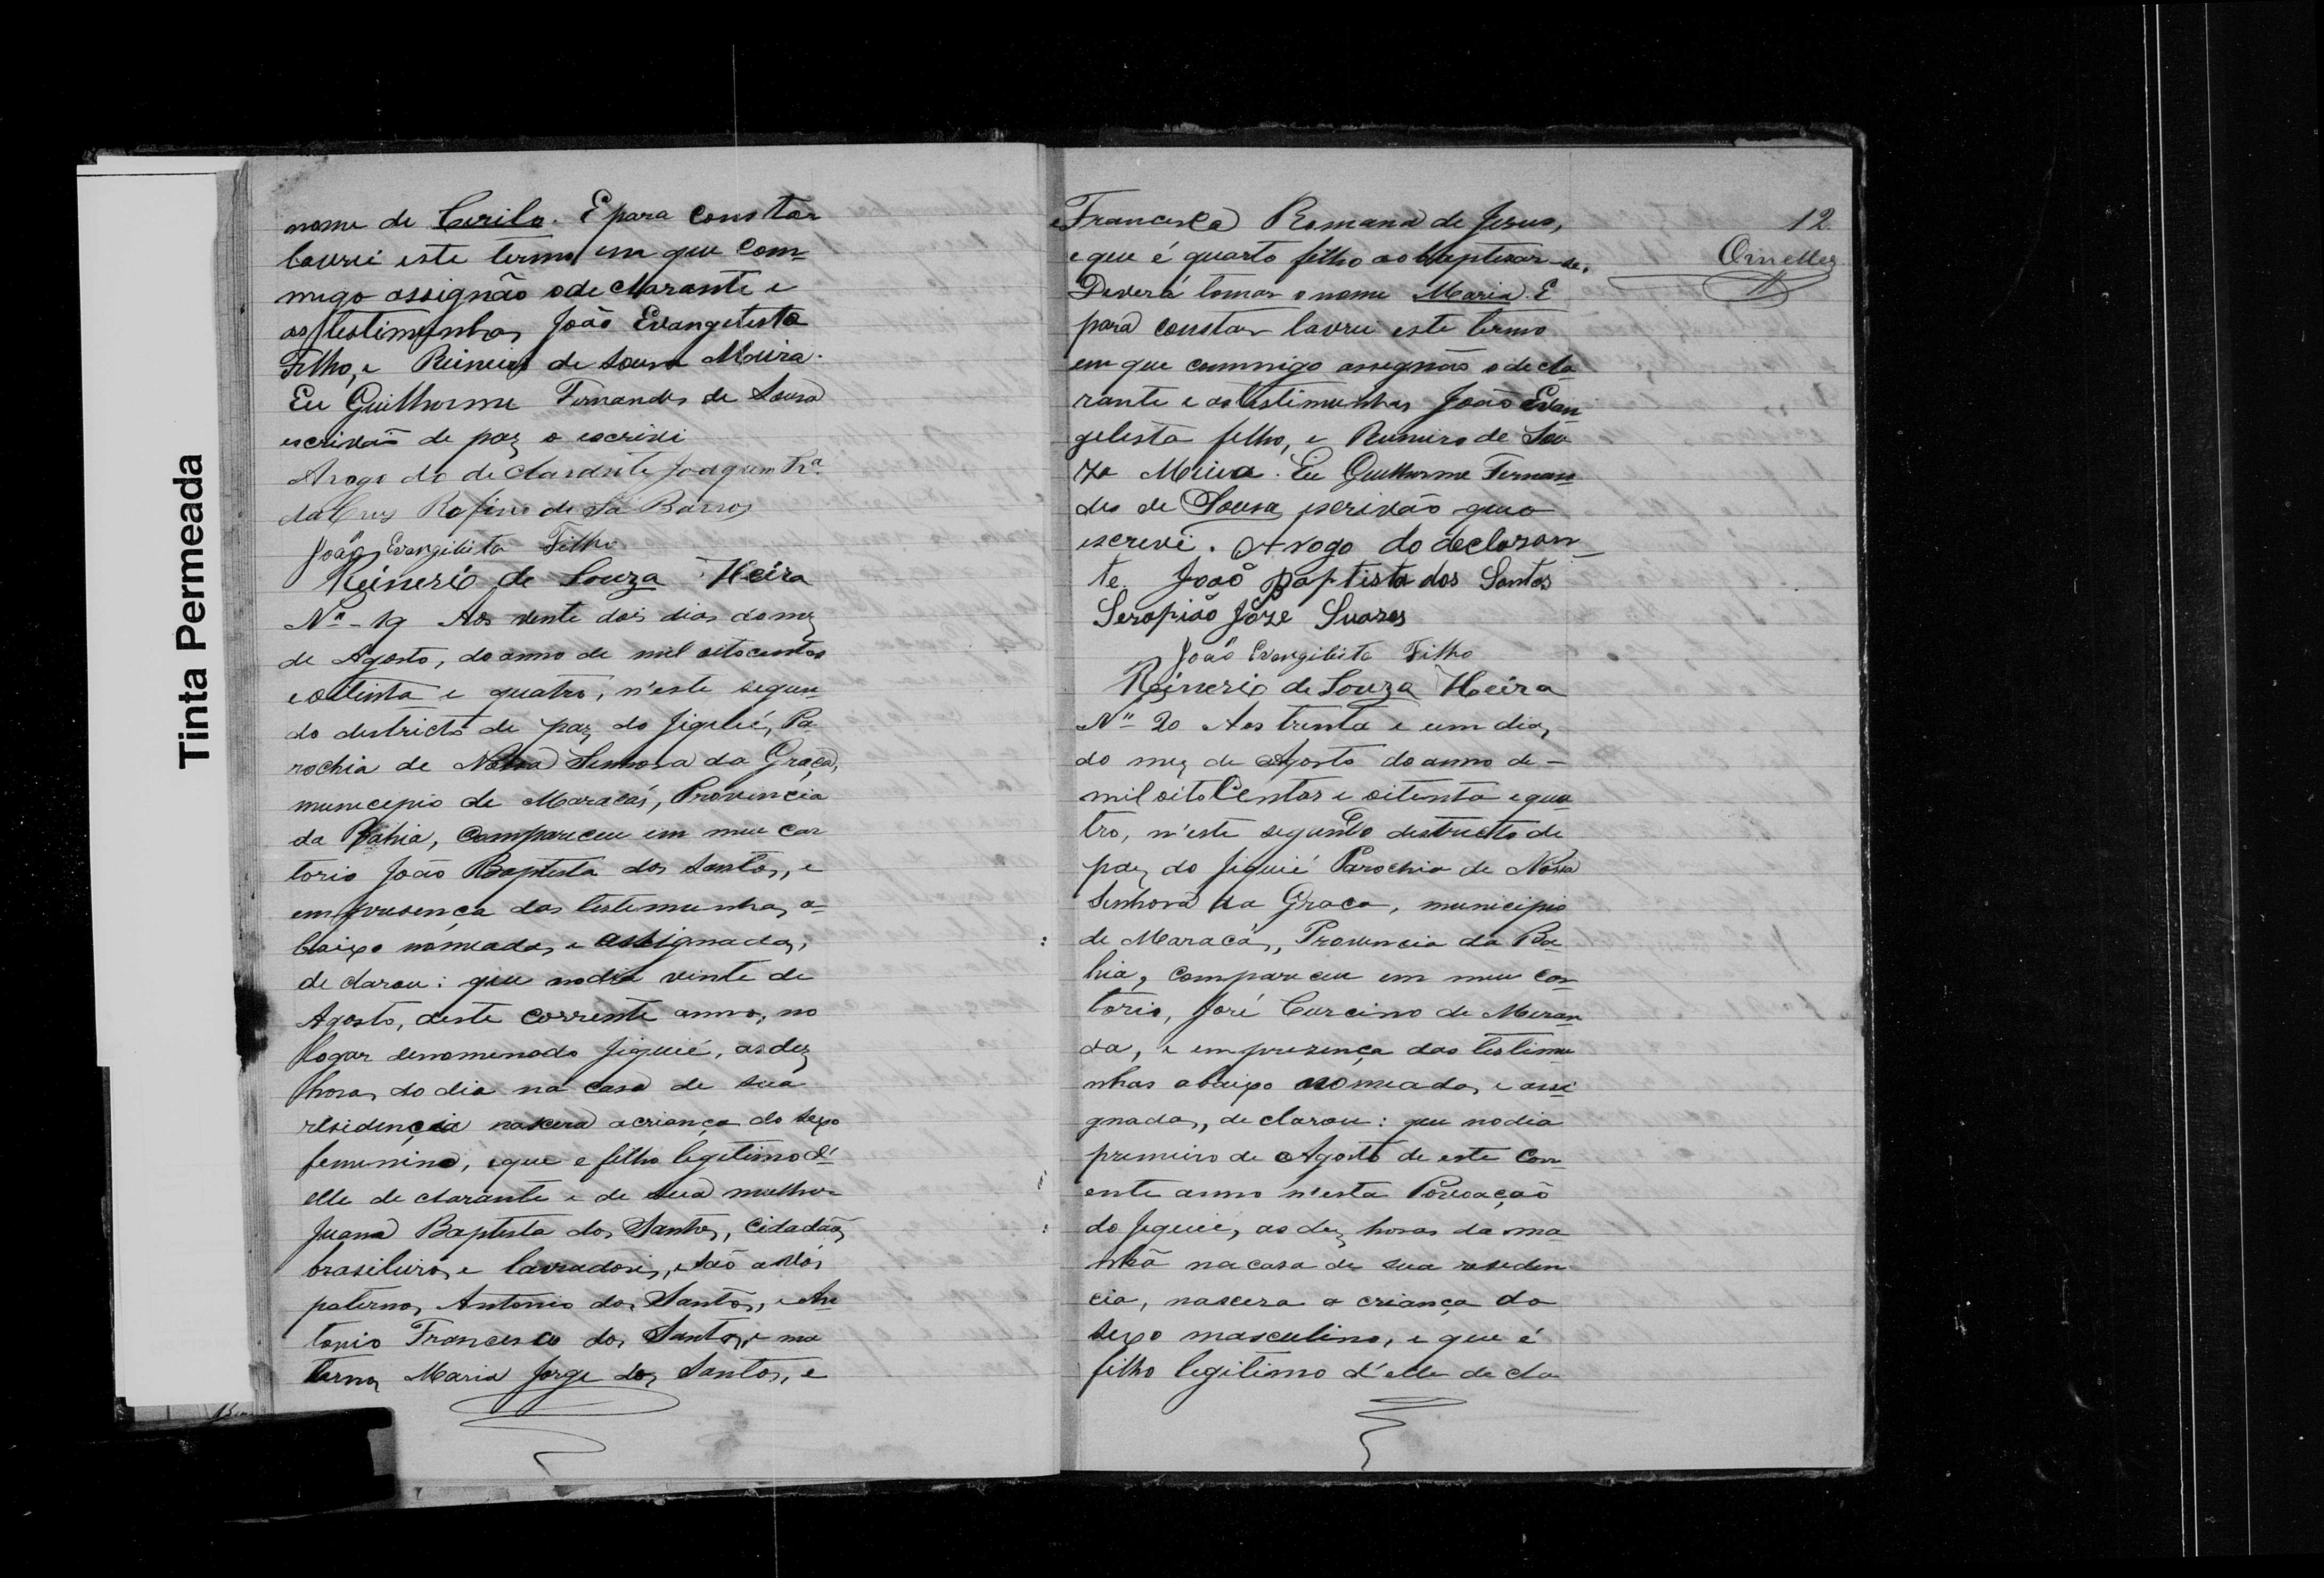 Tinta Permeada
nome de Cerilo. E para constar
lavrei este termo em que com-
migo assignão o declarante e
as testimunhas João Evangelista
Filho, e Reinerio de Sousa Meira.
Eu Guilherme Fernandes de Sousa
escrivão de paz o escrivi
Arogo do declarante Joaquim Frª
da Cruz Rofino de Sá Barros
João Evangilista Filho
Reinerio de Souza Meira
Nº - 19 Aos vente dois dias do mez
de Agosto, do anno de mil oitocentos
e oitinta e quatro, n'este segun-
do destricto de paz do Jiquié, Pa-
rochia de Nossa Senhora da Graça,
municipio de Maracás, Provincia
da Bahia, compareceu em meu car
torio João Baptista dos Santos, e
em presença das testemunhas a-
baixo nomeadas e assignadas,
declarou: que no dia vinte de
Agosto, deste corrente anno, no
logar denomenado Jiquié, as dez
horas do dia na casa de sua
residencia nascera a criança do sexo
femenino, e que e filho legitimo d'
elle declarante e de sua mulher
Juana Baptista dos Santos, cidadãos
brasileiros e lavradores, e são avós
paternos Antonio dos Santos, e An
tonio Francisco dos Santos, e ma
ternos Maria Jorge dos Santos, e
12
Ornelles
e Francisca Romana de Jesus,
e que é quarto filho ao baptisar-se.
Deverá tomar o nome Maria. E
para constar lavrei este termo
em que commigo assegnão o decla
rante e as testimunhas João Evan
gelista filho, e Reineiro de Sou
za Meira. Eu Guilherme Fernan-
des de Sousa escrivão que o
escrevi. A rogo do declaran-
te João Baptista dos Santos
Serapião Joze Suares
João Evangilista Filho
Reinerio de Souza Meira
Nº 20 Aos trinta e um dias
do mez de Agosto do anno de -
mil oito Centos e oitenta e qua-
tro, n'este segundo destricto de
paz do Jiquié Parochia de Nossa
Senhora da Graça, municipio
de Maracás, Provencia da Ba-
hia, compareceu em meu car-
torio, José Curcino de Miran-
da, e em presença das testimu
nhas abaixo nomeadas e assi-
gnadas, declarou: que no dia
premeiro de Agosto de este Corr-
ente anno n'esta Povoação
do Jiquié, as dez horas da ma-
nhã na casa de sua residen-
cia, nascera a criança do
sexo masculino, e que é
filho legitimo d'elle decla